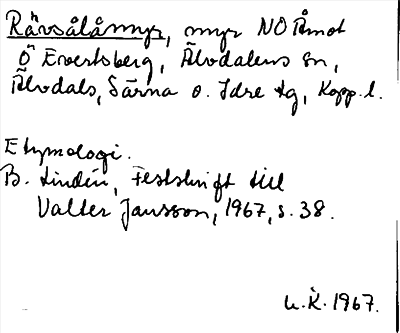 Rävsålåmyr, myr NO Åmot
Ö Evertsberg, Älvdalens sn,
Älvdals, Särna o. Idre tg, Kopp. l.
Etymologi.
B. Lindén, Festskrift till
Valter Jansson, 1967, s. 38.
U.K. 1967.